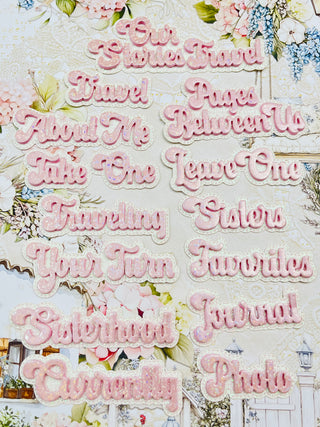 Our
Stories Travel
Travel
Pages
Between Us
About Me
Take One
Leave One
Traveling
Sisters
Your Turn
Favorites
Sisterhood
Journal
Currently
Photo